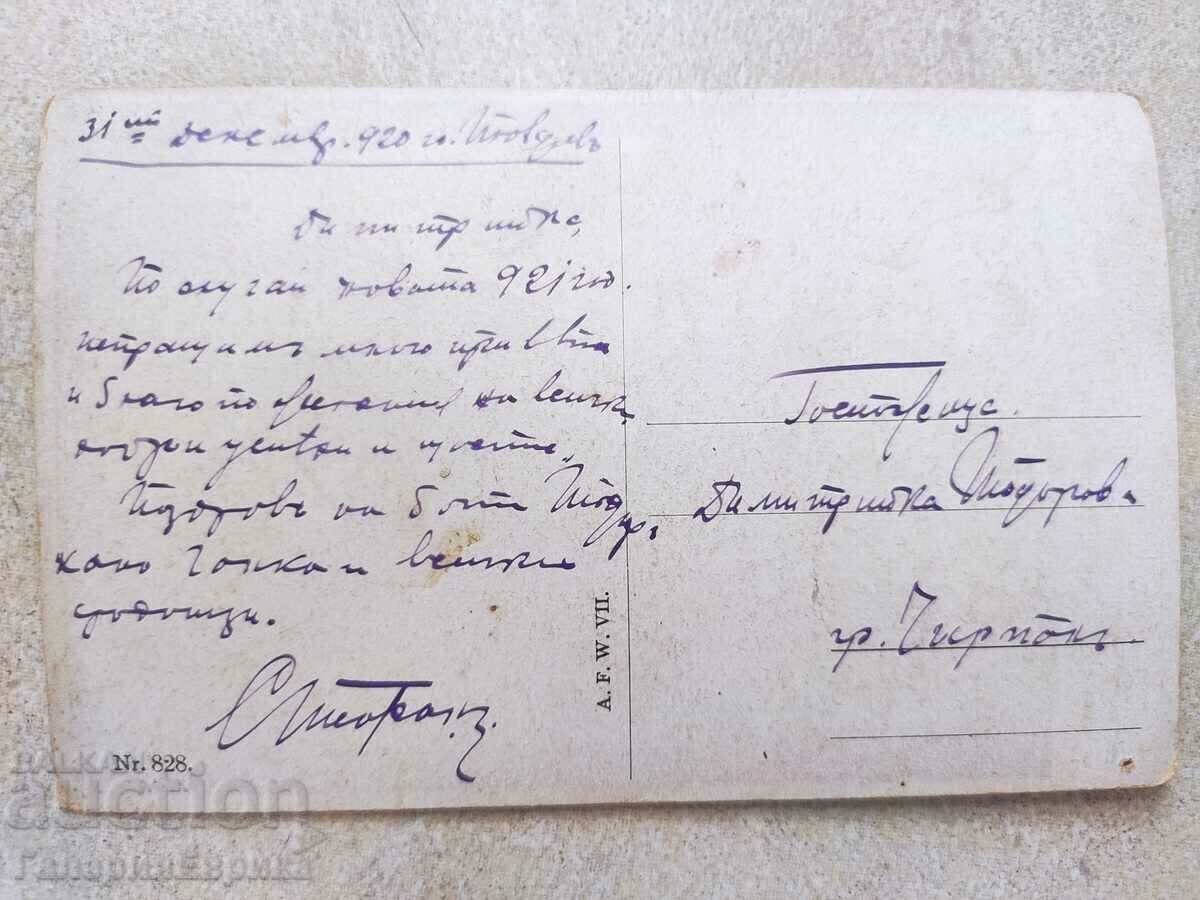 31ий декемвр. 920 г. Пловдивъ
Димитрийке,
По случаи новата 921 год.
изпращамъ много привети
и благопожелания на всички
добри успехи и щастие.
Поздравъ на бати Тодор,
како Ганка и всички
сродници.
Стефанъ.
Госпожица
Димитрийка Тодорова
гр. Чирпанъ.
A. F. W. VII.
Nr. 828.
BALKAN
auction
ГалерияЕврика